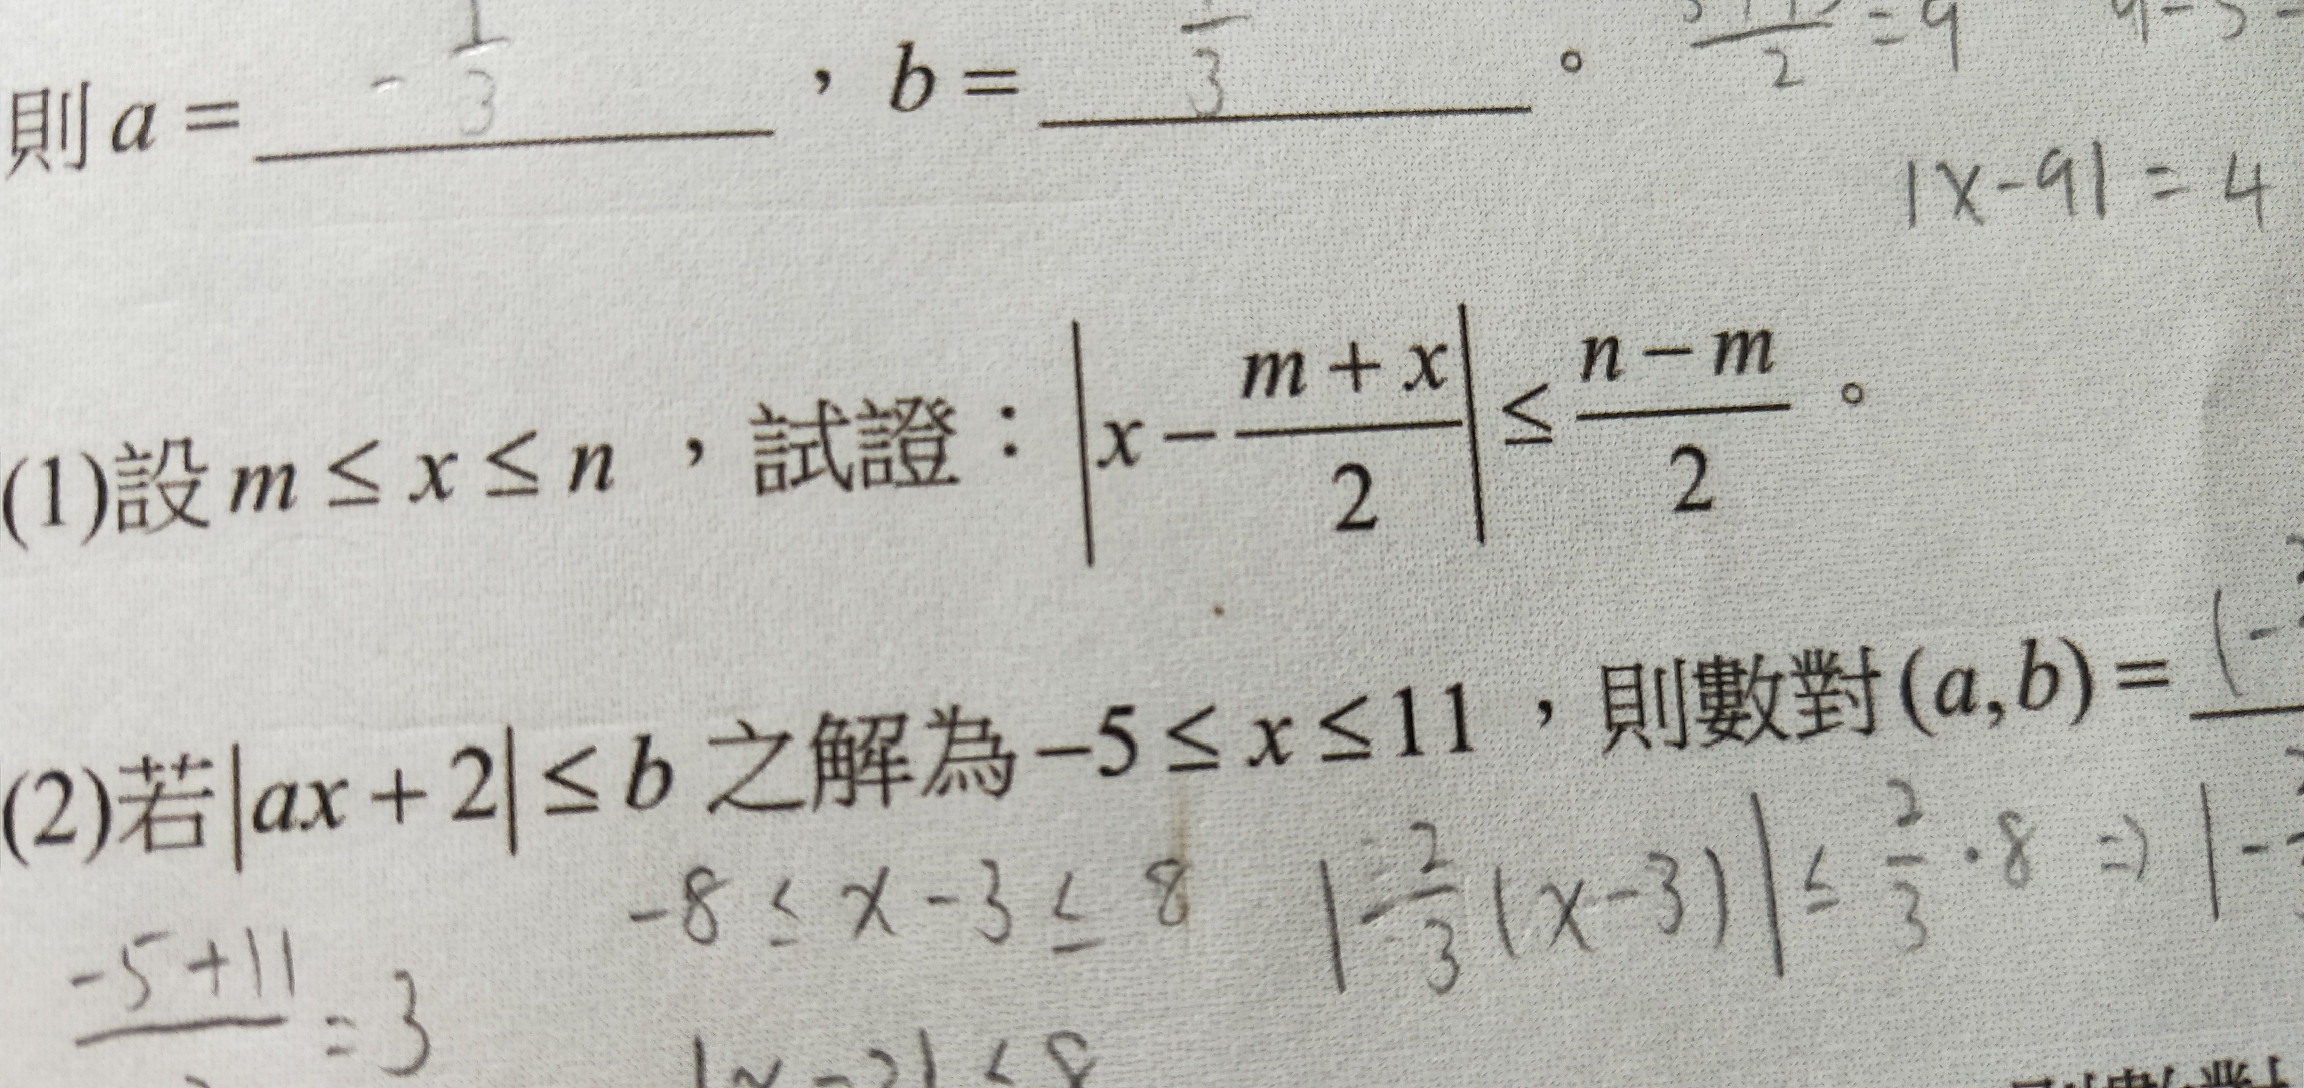 則 a = -1/3 , b = 1/3 。
/2 = 9
|x-9| = 4
(1)設 m ≤ x ≤ n ,試證: |x - (m + x)/2| ≤ (n - m)/2 。
(2)若|ax + 2| ≤ b 之解為 -5 ≤ x ≤ 11 ,則數對(a,b) = (-
-8 ≤ x-3 ≤ 8 |-2/3(x-3)| ≤ 2/3·8 ⇒ |-
(-5+11)/ = 3